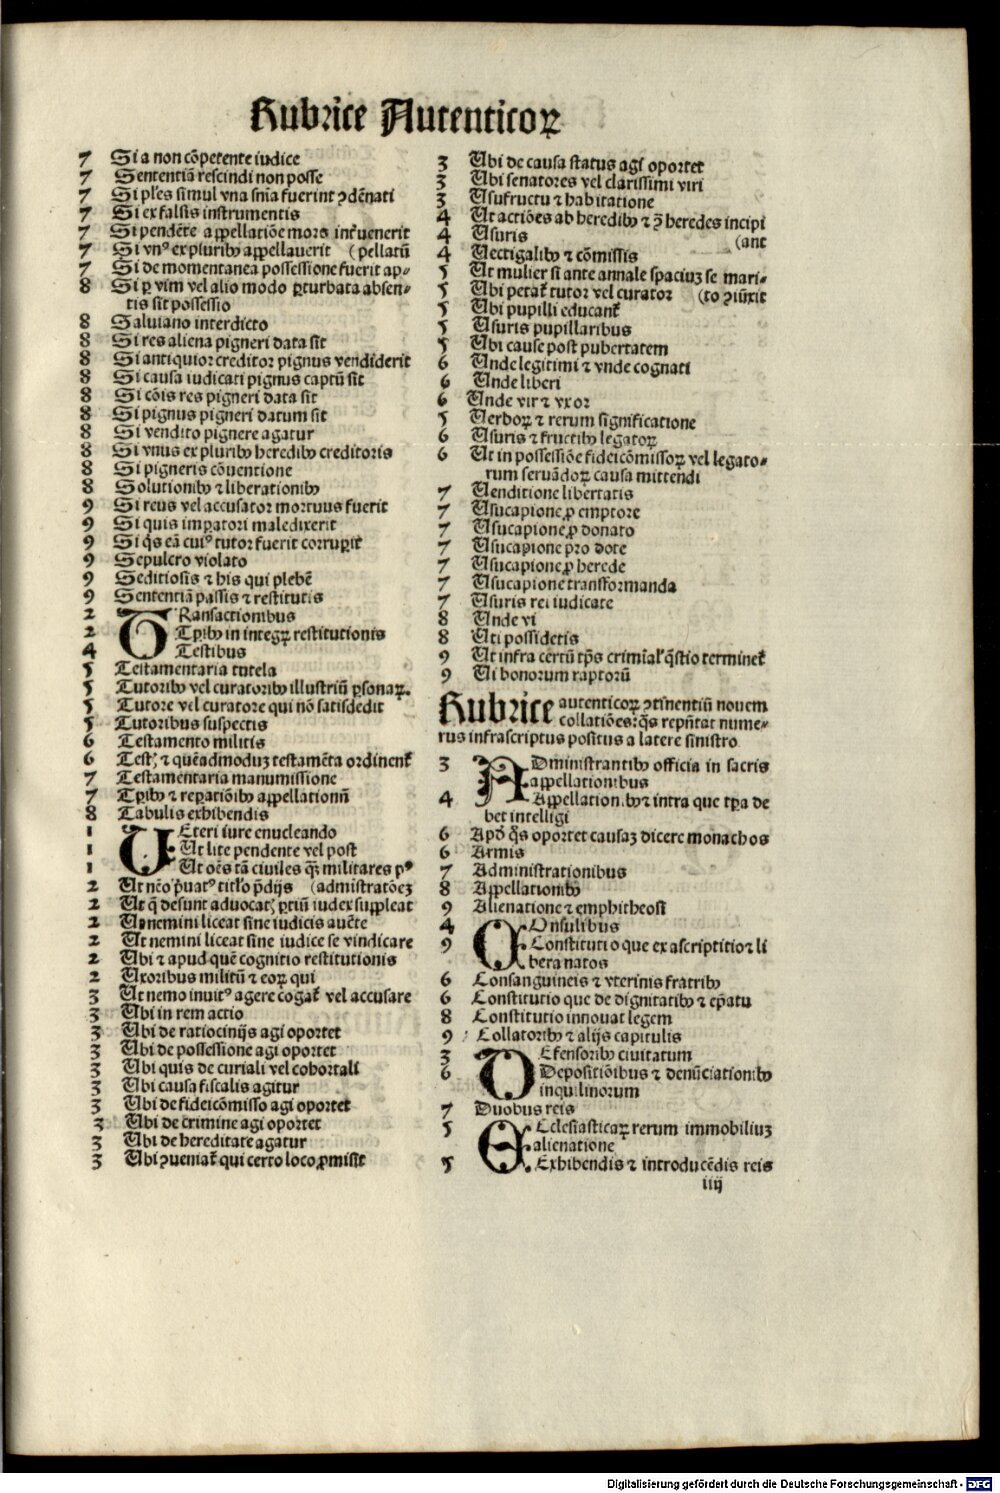 Rubrice Autenticoꝝ
7 Si a non cōpetente iudice
7 Sententiā rescindi non posse
7 Si pl̄es simul vna snīa fuerint ꝯdēnati
7 Si ex falsis instrumentis
7 Si pendēte appellatiōe mors int̄uenerit
7 Si vnꝰ ex pluribꝫ appellauerit (pellatū
7 Si de momentanea possessione fuerit ap-
8 Si ꝑ vim vel alio modo ꝑturbata absen-
tis sit possessio
8 Saluiano interdicto
8 Si res aliena pigneri data sit
8 Si antiquior creditor pignus vendiderit
8 Si causa iudicati pignus captū sit
8 Si cōis res pigneri data sit
8 Si pignus pigneri datum sit
8 Si vendito pignere agatur
8 Si vnus ex pluribꝫ heredibꝫ creditoris
8 Si pigneris cōuentione
8 Solutionibꝫ ⁊ liberationibꝫ
9 Si reus vel accusator mortuus fuerit
9 Si quis imꝑatori maledixerit
9 Si q̄s eā cuiꝰ tutor fuerit corruꝑit̄
9 Sepulcro violato
9 Seditiosis ⁊ his qui plebē
9 Sententiā passis ⁊ restitutis
2 TRansactionibus
2 Tꝑibꝫ in integꝝ restitutionis
4 Testibus
5 Testamentaria tutela
5 Tutoribꝫ vel curatoribꝫ illustriū ꝑsonaꝝ.
5 Tutore vel curatore qui nō satisdedit
5 Tutoribus suspectis
6 Testamento militis
6 Test; ⁊ quēadmoduꝫ testamēta ordinent̄
7 Testamentaria manumissione
7 Tꝑibꝫ ⁊ reꝑatiōibꝫ appellationū
8 Tabulis exhibendis
1 VEteri iure enucleando
1 Ut lite pendente vel post
1 Ut oēs tā civiles qꝫ militares pꝰ
2 Ut nēo p̄uatꝰ titl'o p̄dijs (admistratōeꝫ
2 Ut q̄ desunt aduocatꝫ ꝑtiū iudex suppleat
2 Ut nemini liceat sine iudicis auc̄te
2 Ut nemini liceat sine iudice se vindicare
2 Ubi ⁊ apud quē cognitio restitutionis
2 Uxoribus militū ⁊ eoꝝ qui
3 Ut nemo inuitꝰ agere cogat̄ vel accusare
3 Ubi in rem actio
3 Ubi de ratiocinijs agi oportet
3 Ubi de possessione agi oportet
3 Ubi quis de curiali vel cohortali
3 Ubi causa fiscalis agitur
3 Ubi de fideicōmisso agi oportet
3 Ubi de crimine agi oportet
3 Ubi de hereditate agatur
3 Ubi ꝯueniat̄ qui certo loco ꝓmisit
3 Ubi de causa status agi oportet
3 Ubi senatores vel clarissimi viri
3 Usufructu ⁊ habitatione
4 Ut actiōes ab heredibꝫ ⁊ ꝯ̄ heredes incipi
4 Usuris (ant
4 Uectigalibꝫ ⁊ cōmissis
5 Ut mulier si ante annale spaciuꝫ se mari-
5 Ubi petat̄ tutor vel curator (to ꝯiūxit
5 Ubi pupilli educant̄
5 Usuris pupillaribus
5 Ubi cause post pubertatem
6 Unde legitimi ⁊ vnde cognati
6 Unde liberi
6 Unde vir ⁊ vxor
5 Uerboꝝ ⁊ rerum significatione
6 Usuris ⁊ fructibꝫ legatoꝝ
6 Ut in possessiōe fideicōmissoꝝ vel legato-
rum seruādoꝝ causa mittendi
7 Uenditione libertatis
7 Usucapione ꝓ emptore
7 Usucapione ꝓ donato
7 Usucapione pro dote
7 Usucapione ꝓ herede
7 Usucapione transformanda
7 Usuris rei iudicate
8 Unde vi
8 Uti possidetis
9 Ut infra certū tꝑs crim̄al' q̄stio terminet̄
9 Ui bonorum raptorū
Rubrice autenticoꝝ ꝯtinentiū nouem
collatiōes: q̄s repn̄tat nume-
rus infrascriptus positus a latere sinistro
3 ADministrantibꝫ officia in sacris
appellationibus
4 Appellation.ibꝫ ⁊ intra que tꝑa de
bet intelligi
6 Apd̄ q̄s oportet causaꝫ dicere monachos
6 Armis
7 Administrationibus
8 Appellationibꝫ
9 Alienatione ⁊ emphitheosi
4 COnsulibus
9 Constitutio que ex ascriptitio ⁊ li
bera natos
6 Consanguineis ⁊ vterinis fratribꝫ
6 Constitutio que de dignitatibꝫ ⁊ ep̄atu
8 Constitutio innouat legem
9 Collatoribꝫ ⁊ alijs capitulis
3 DEfensoribꝫ ciuitatum
6 Depositiōibus ⁊ denūciationibꝫ
inquilinorum
7 Duobus reis
5 ECclesiasticaꝝ rerum immobiliuꝫ
alienatione
5 Exhibendis ⁊ introducēdis reis
iiij
Digitalisierung gefördert durch die Deutsche Forschungsgemeinschaft - DFG